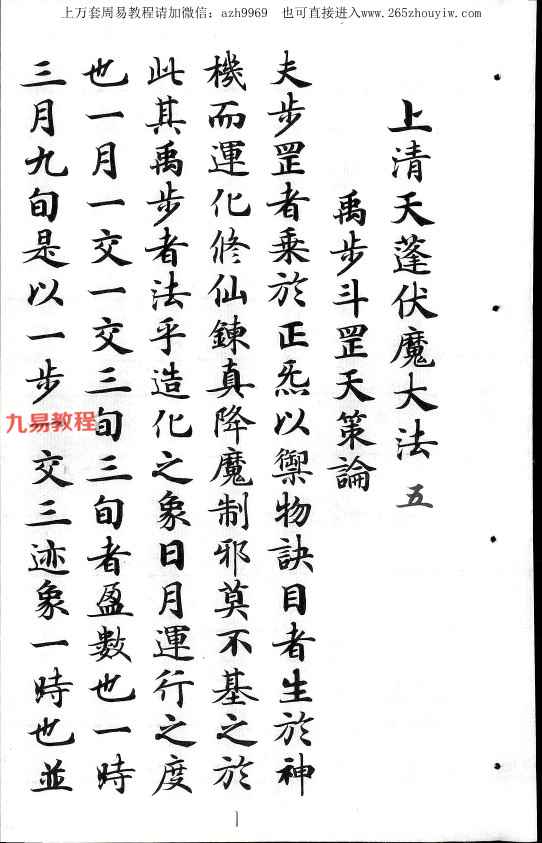 上万套周易教程请加微信：azh9969　也可直接进入www.265zhouyiw.com
上清天蓬伏魔大法 五
禹步斗罡天策論
夫步罡者乘於正炁以禦物訣目者生於神
機而運化修仙鍊真降魔制邪莫不基之於
此其禹步者法乎造化之象日月運行之度
也一月一交一交三旬三旬者盈數也一時
三月九旬是以一步一交三迹象一時也並
九易教程
1